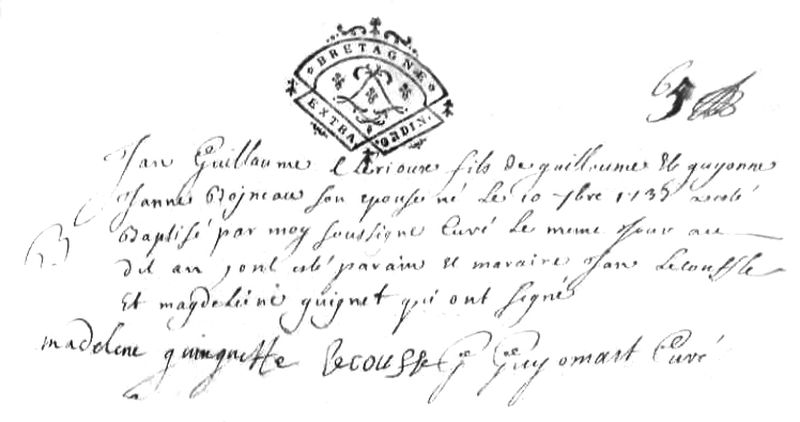 BRETAGNE
EXTRA ORDIN.
65
Jan Guillaume fils de guillaume Et guyonne
Janne son epouse né le 10 7bre 1735 a esté
Baptisé par moy soussigne Curé le meme Jour au
dit an ont esté parain Et maraine Jan Lecouffle
Et magdeleine guignet qui ont signé
B
madelene guinguette Lecouffle G Guyomart Curé